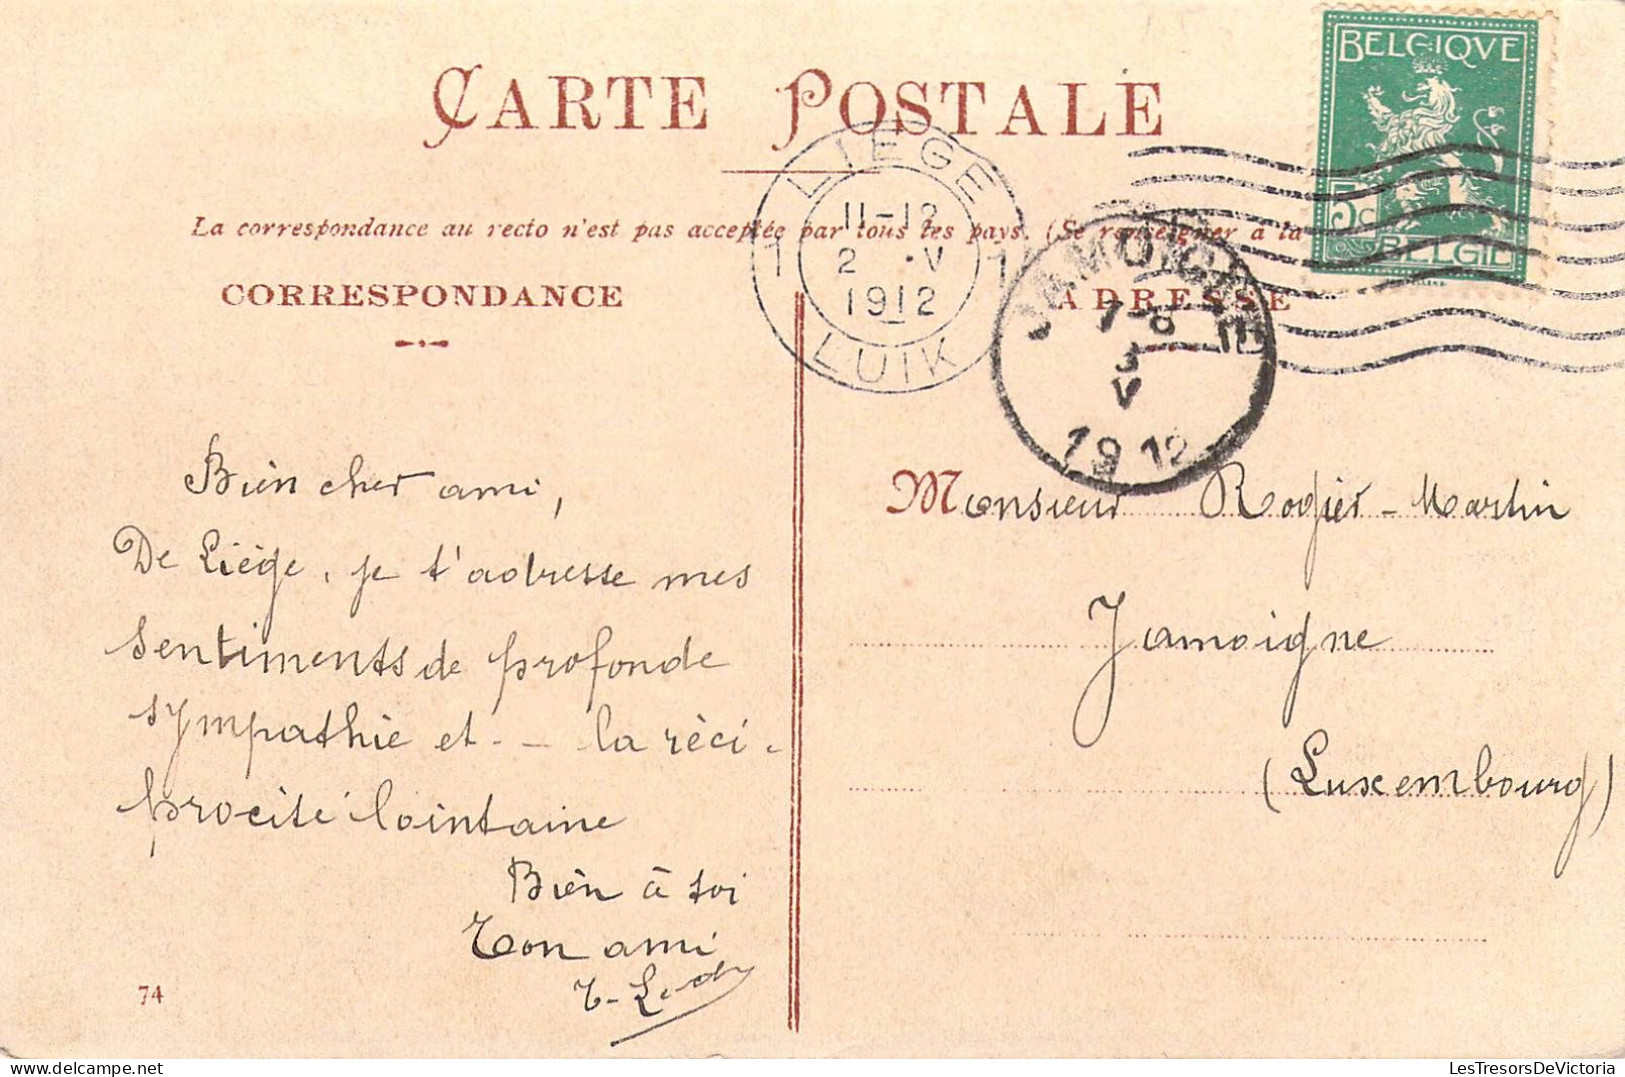 CARTE POSTALE
BELGIQVE
5c
BELGIE
LIÈGE
11-12
2 ·V
1912
1 1
LUIK
La correspondance au recto n'est pas acceptée par tous les pays. (Se renseigner à la
CORRESPONDANCE
ADRESSE
JAMOIGNE
7-8
3
V
1912
Bien cher ami,
De Liège, je t'adresse mes
sentiments de profonde
sympathie et - - la réci-
procité lointaine
Bien à toi
Ton ami
74
Monsieur Rogier-Martin
Jamoigne
(Luxembourg)
LesTresorsDeVictoria